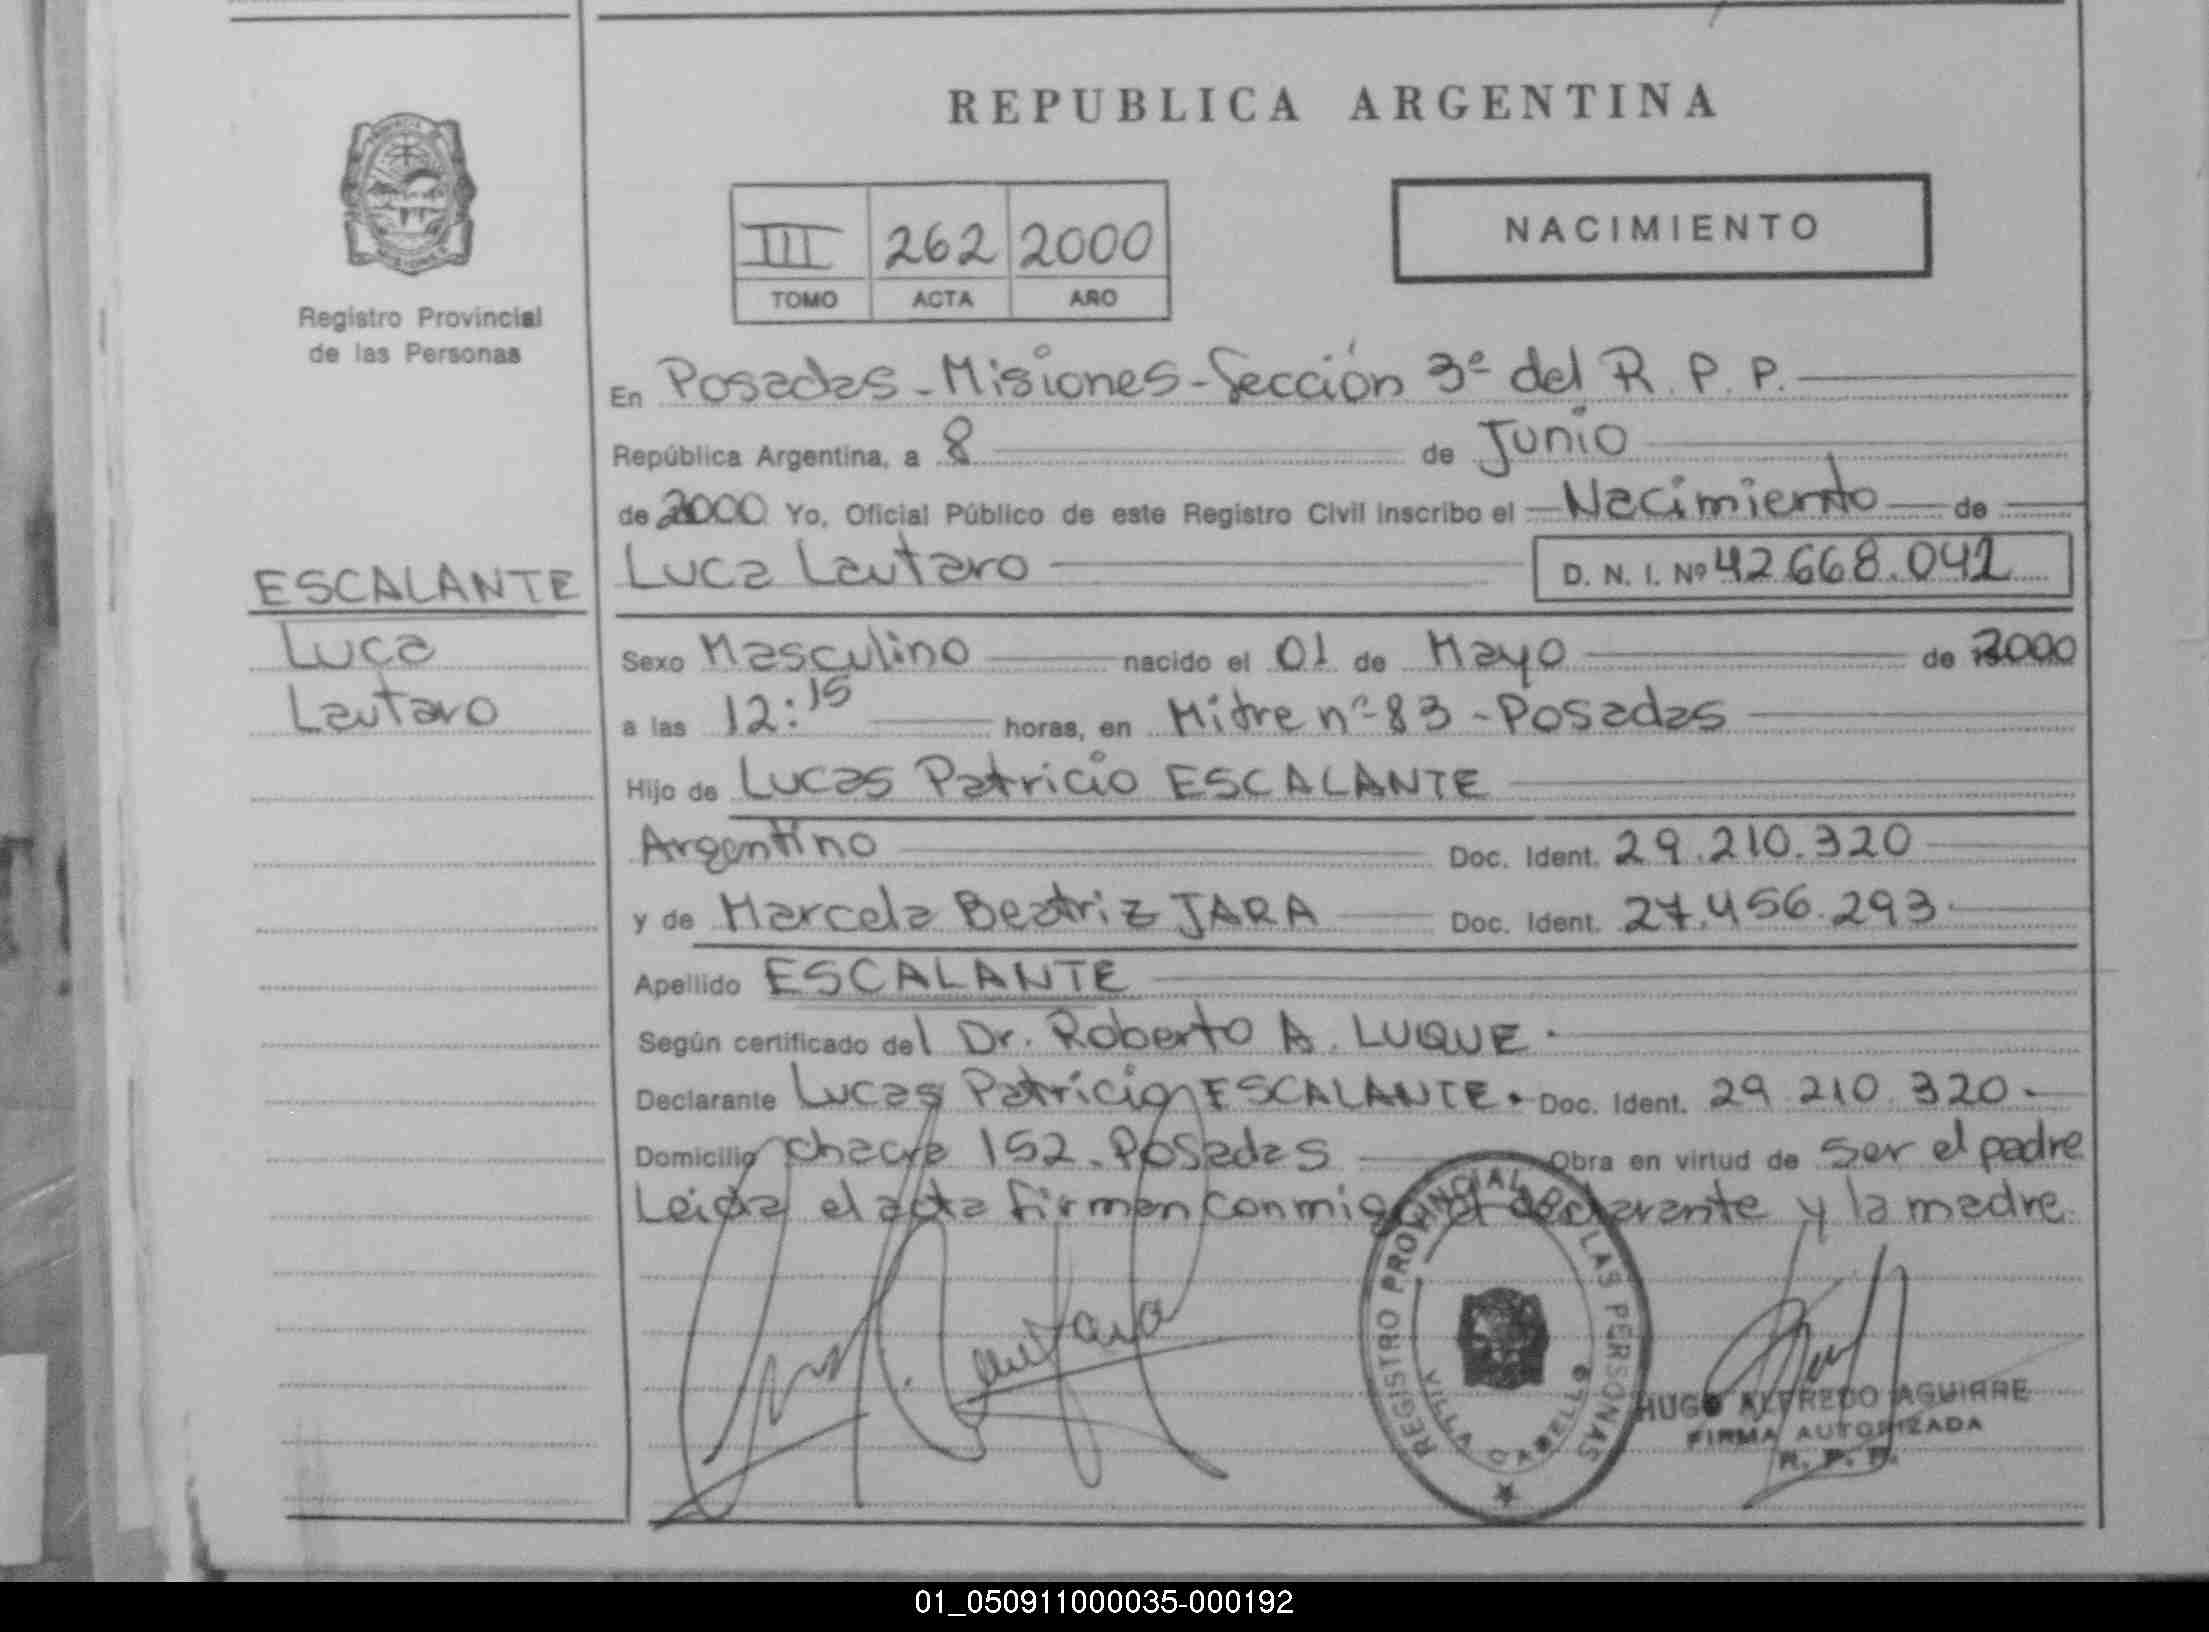 REPUBLICA ARGENTINA
NACIMIENTO
III 262 2000
TOMO ACTA AÑO
Registro Provincial
de las Personas
ESCALANTE
Luca
Lautaro
En Posadas - Misiones - Sección 3ª del R. P. P.
República Argentina, a 8 de Junio
de 2000 Yo, Oficial Público de este Registro Civil inscribo el Nacimiento de
Luca Lautaro D. N. I. Nº 42.668.041
Sexo Masculino nacido el 01 de Mayo de 2000
a las 12:15 horas, en Mitre nº 83 - Posadas
Hijo de Lucas Patricio ESCALANTE
Argentino Doc. Ident. 29.210.320
y de Marcela Beatriz JARA Doc. Ident. 27.456.293
Apellido ESCALANTE
Según certificado del Dr. Roberto A. LUQUE.
Declarante Lucas Patricio ESCALANTE. Doc. Ident. 29.210.320.
Domicilio chacra 152. Posadas Obra en virtud de ser el padre
Leida el acta firman conmigo el declarante y la madre.
REGISTRO PROVINCIAL DE LAS PERSONAS
VILLA CABELLO
HUGO ALFREDO AGUIRRE
FIRMA AUTORIZADA
R. P. P.
01_050911000035-000192